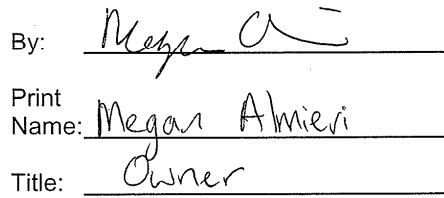 By: Megan
Print
Name: Megan Almieri
Title: Owner